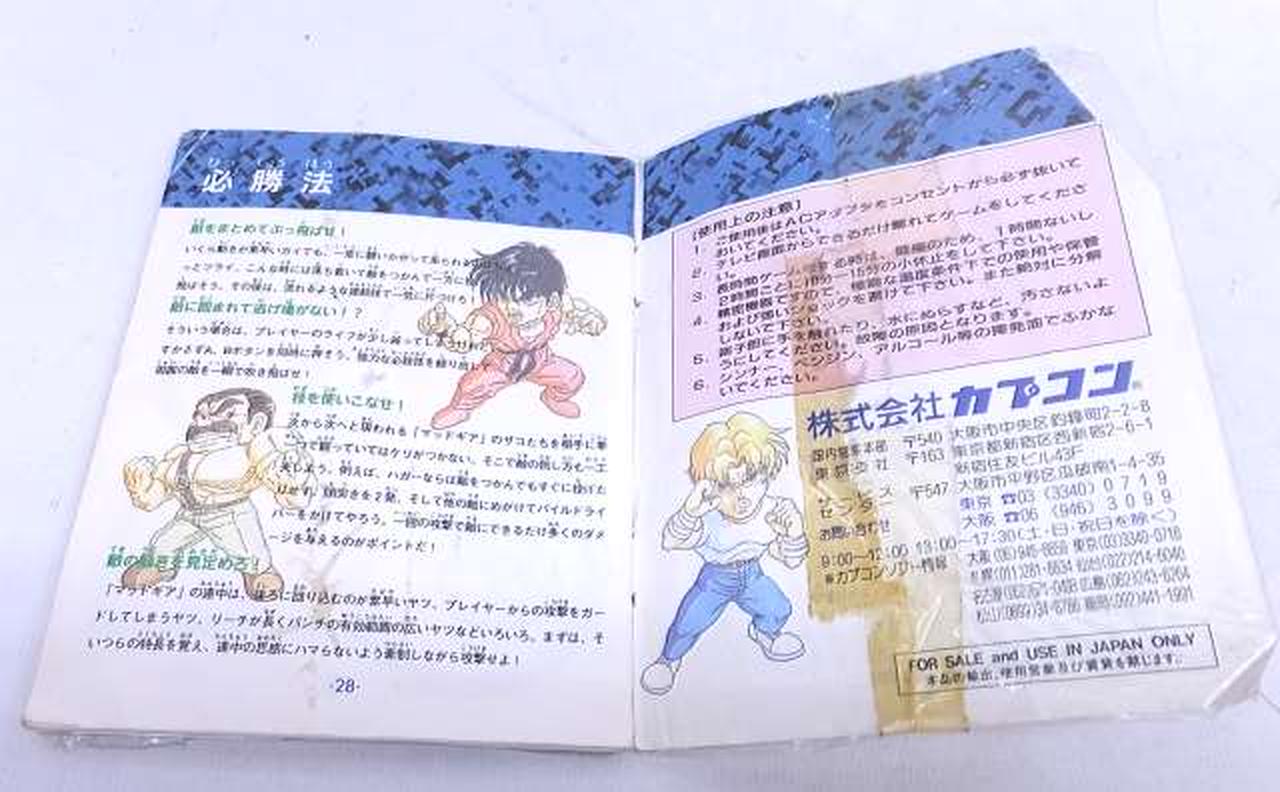 必勝法
敵をまとめてぶっ飛ばせ！
いくら動きが素早いガイでも、一度に襲いかかって来られる
っとツライ。こんな時には落ち着いて敵をつかんで一方に
飛ばそう。その後は、流れるような連続技で一気に片づける！
敵に囲まれて逃げ場がない！？
そういう場合は、プレイヤーのライフが少し減ってしまう
すかさずA、Bボタンを同時に押そう。強力な必殺技を繰り出して
周囲の敵を一瞬で吹き飛ばせ！
技を使いこなせ！
次から次へと現われる「マッドギア」のザコたちを相手に単
って戦っていてはケリがつかない。そこで敵の倒し方も一工
夫しよう。例えば、ハガーならば敵をつかんでもすぐに投げた
はせず、頭突きを2発、そして他の敵にめがけてパイルドライ
バーをかけてやろう。一回の攻撃で敵にできるだけ多くのダメ
ージを与えるのがポイントだ！
敵の動きを見定めろ！
「マッドギア」の連中は、後ろに回り込むのが素早いヤツ、プレイヤーからの攻撃をガー
ドしてしまうヤツ、リーチが長くパンチの有効範囲の広いヤツなどいろいろ。まずは、そ
いつらの特長を覚え、連中の思惑にハマらないよう牽制しながら攻撃せよ！
-28-
【使用上の注意】
1. ご使用後はACアダプタをコンセントから必ず抜いて
おいてください。
2. テレビ画面からできるだけ離れてゲームをしてくださ
い。
3. 長時間ゲームをする時は、健康のため、1時間ないし
2時間ごとに10分〜15分の小休止をして下さい。
4. 精密機器ですので、極端な温度条件下での使用や保管
および強いショックを避けて下さい。また絶対に分解
しないで下さい。
5. 端子部に手を触れたり、水にぬらすなど、汚さないよ
うにしてください。故障の原因となります。
6. シンナー、ベンジン、アルコール等の揮発油でふかな
いでください。
株式会社カプコン®
国内営業本部 〒540 大阪市中央区釣鐘町2-2-8
東京支社 〒163 東京都新宿区西新宿2-6-1
新宿住友ビル43F
サービス 〒547 大阪市平野区瓜破南1-4-35
センター 東京☎03(3340)0719
お問い合わせ 大阪☎06(946)3099
9:00〜12:00 13:00〜17:30(土・日・祝日を除く)
※カプコンソフト情報 大阪(06)946-6659 東京(03)3340-0718
札幌(011)281-8834 仙台(022)214-6040
名古屋(052)571-0493 広島(082)243-6264
松山(0899)34-8786 福岡(092)441-1991
FOR SALE and USE IN JAPAN ONLY
本品の輸出、使用営業及び賃貸を禁じます。